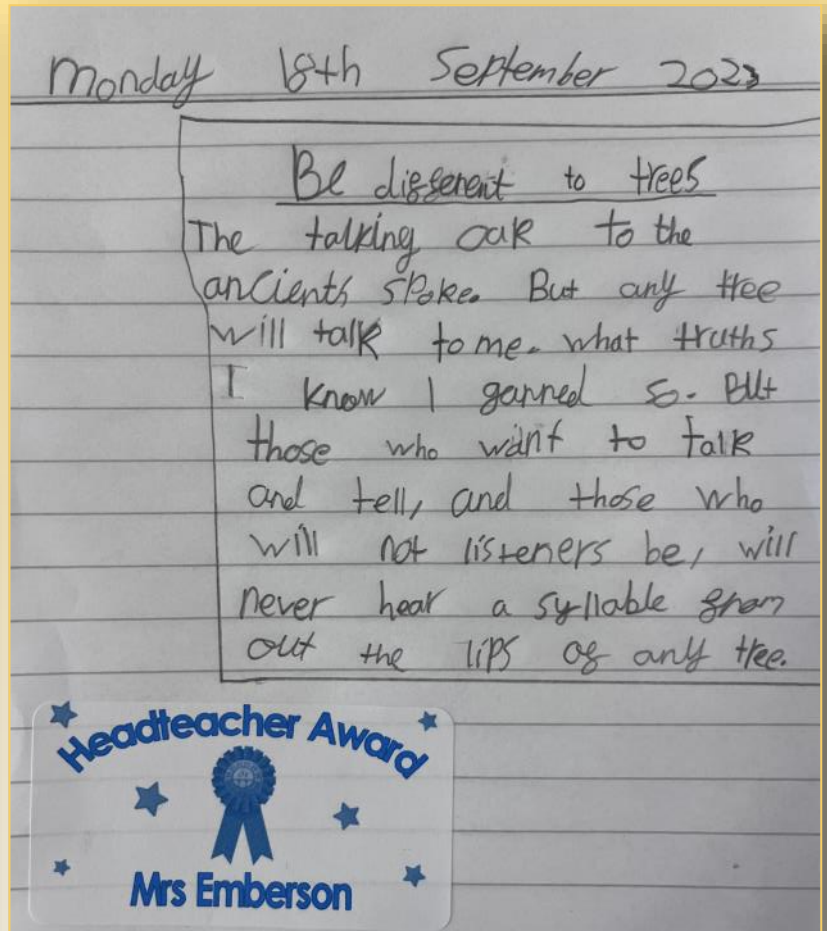 Monday 18th September 2023
Be different to trees
The talking oak to the
ancients spoke. But any tree
will talk to me. what truths
I know I garned so. But
those who want to talk
and tell, and those who
will not listeners be, will
never hear a syllable from
out the lips of any tree.
Headteacher Award
Mrs Emberson